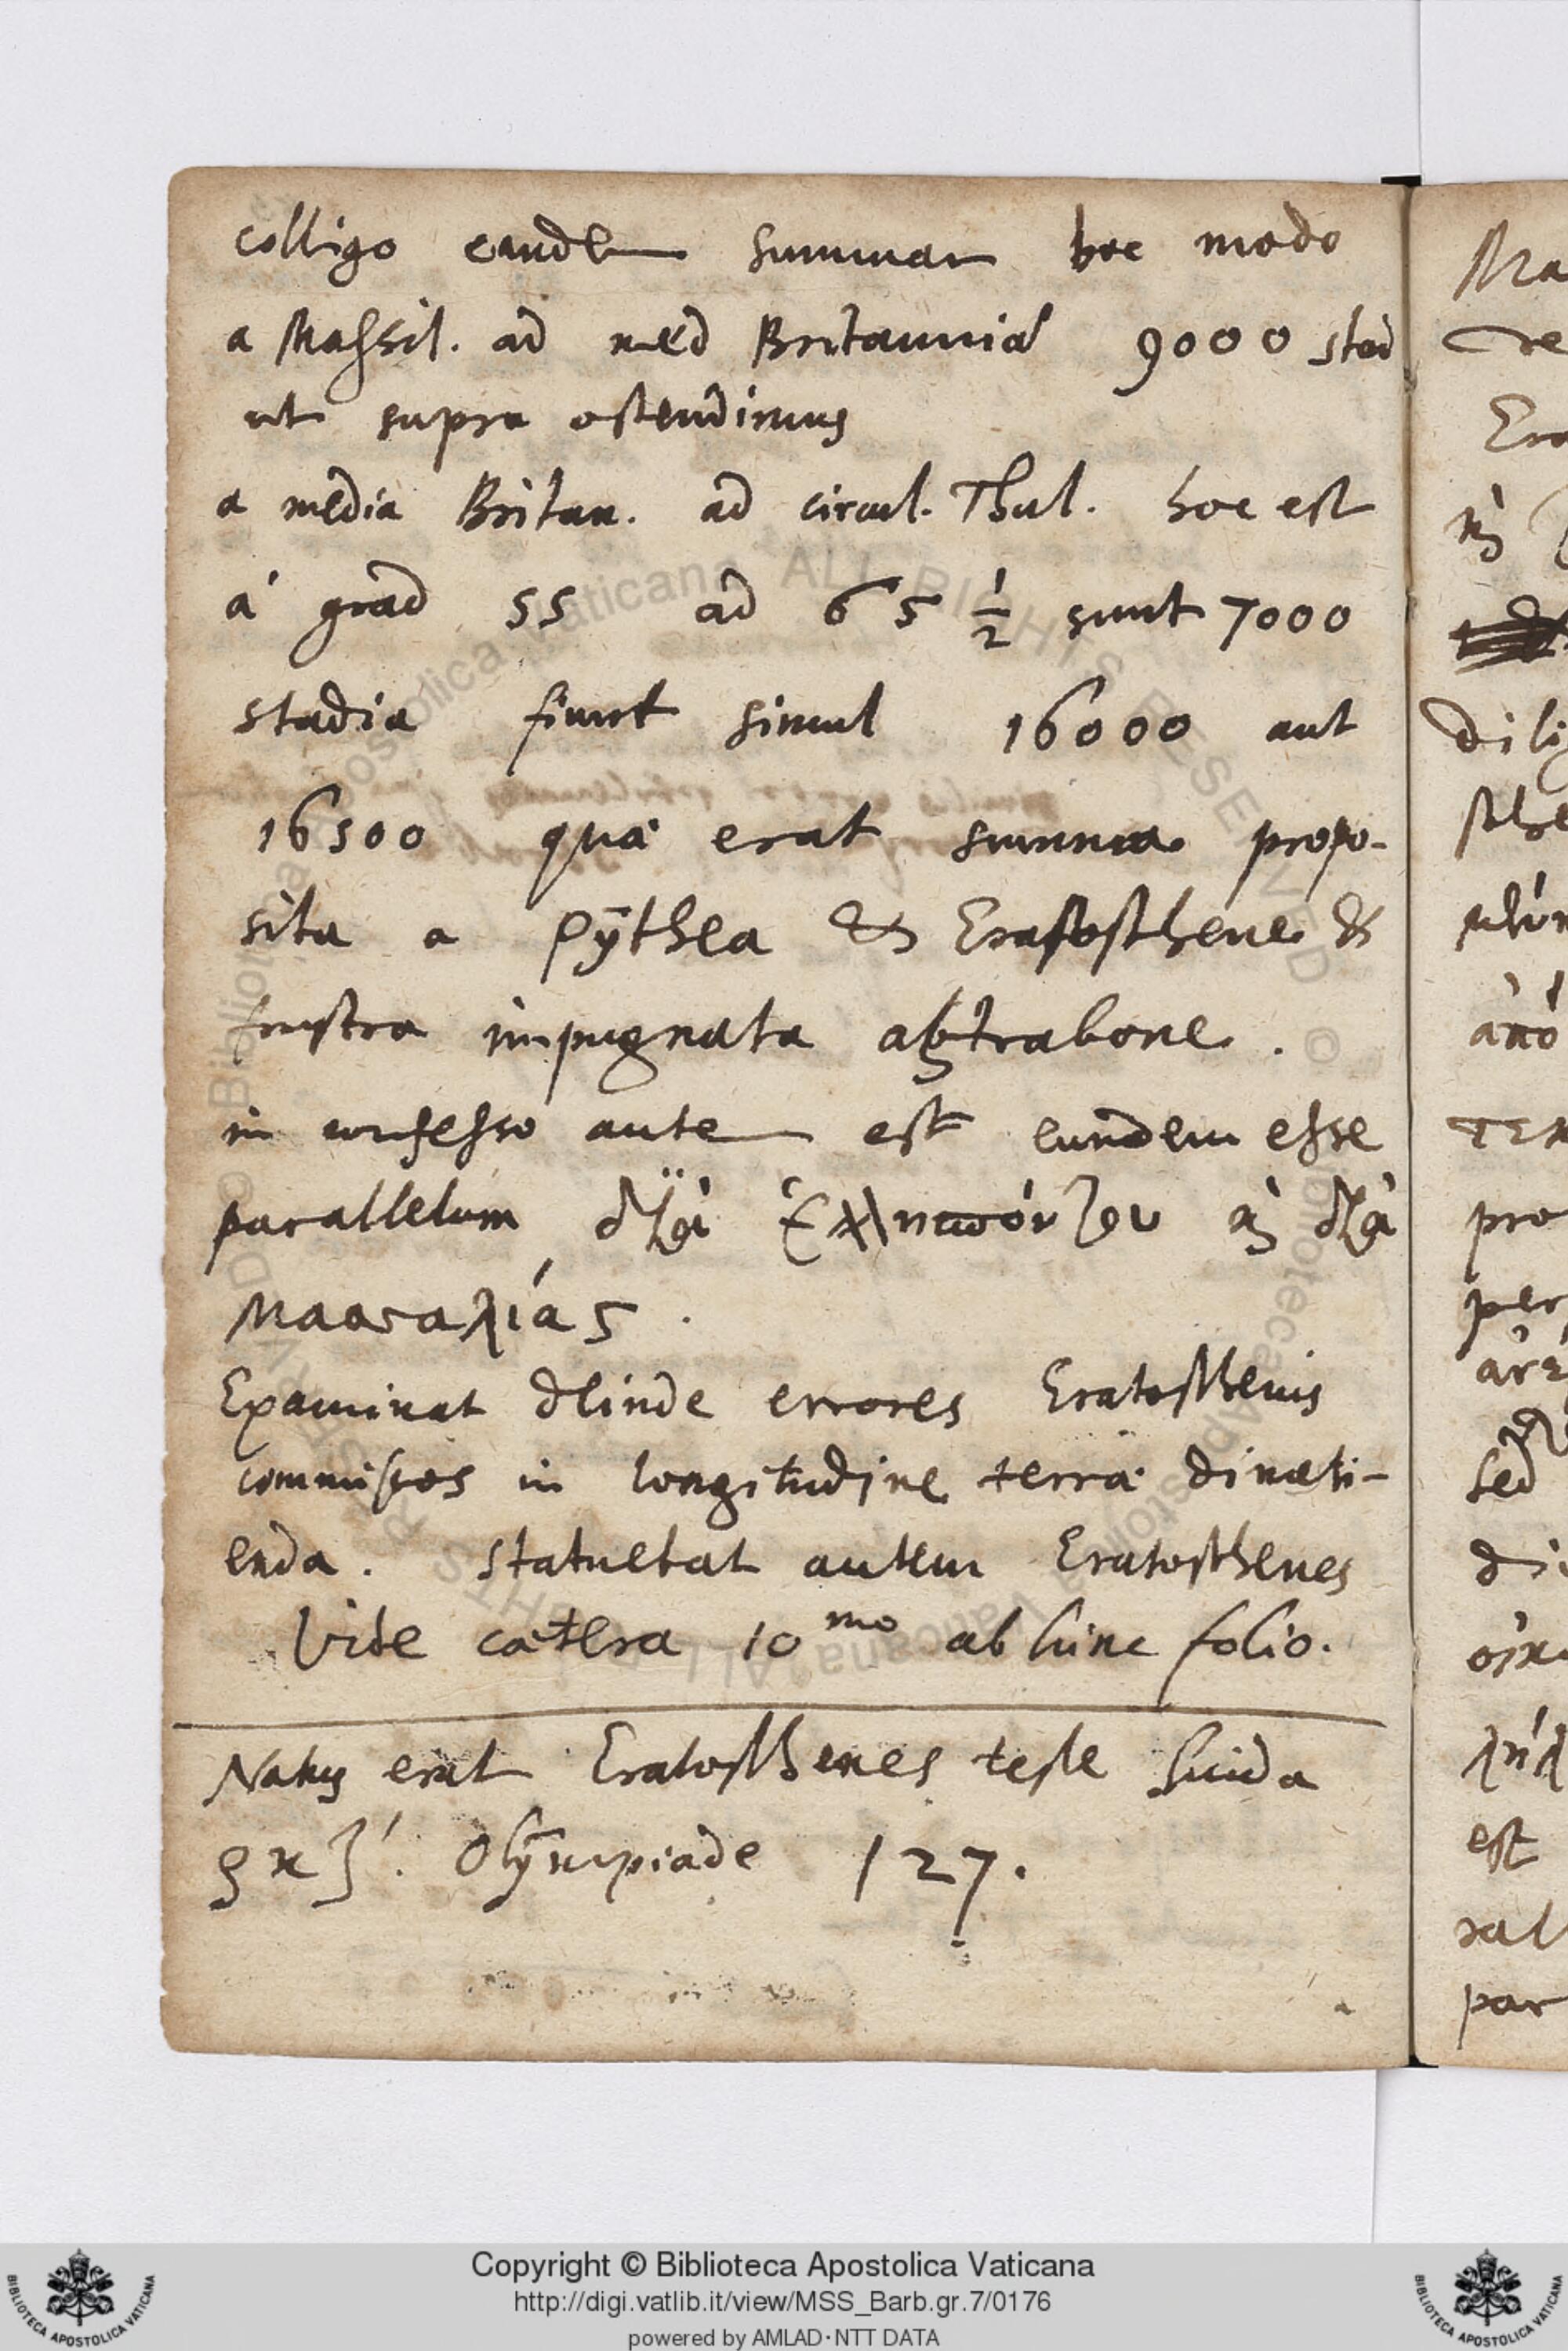 colligo eandem summam hoc modo
a Massil. ad med Britannia 9000 stad
ut supra ostendimus
a media Britan. ad circul. Thul. hoc est
á grad 55 ad 65 1/2 sunt 7000
stadia fiunt simul 16000 aut
16500 quæ erat summa propo-
sita a Pÿthea & Eratosthene &
frustra impugnata ab Strabone.
in confesso autem est eundem esse
parallelum διὰ Ἑλλησπόντου καὶ διὰ
Μασσαλίας.
Examinat deinde errores Eratosthenis
commissos in longitudine terræ dimeti-
enda. statuebat autem Eratosthenes
Vide cætera 10mo ab hinc folio.
Natus erat Eratosthenes teste Suida
ρκζ́. Olÿmpiade 127.
Ma
Era
dili
ἀπό
pro
per
sed
est
ral
par
Copyright © Biblioteca Apostolica Vaticana
http://digi.vatlib.it/view/MSS_Barb.gr.7/0176
powered by AMLAD·NTT DATA
BIBLIOTECA APOSTOLICA VATICANA
BIBLIOTECA APOSTOLICA VATICANA